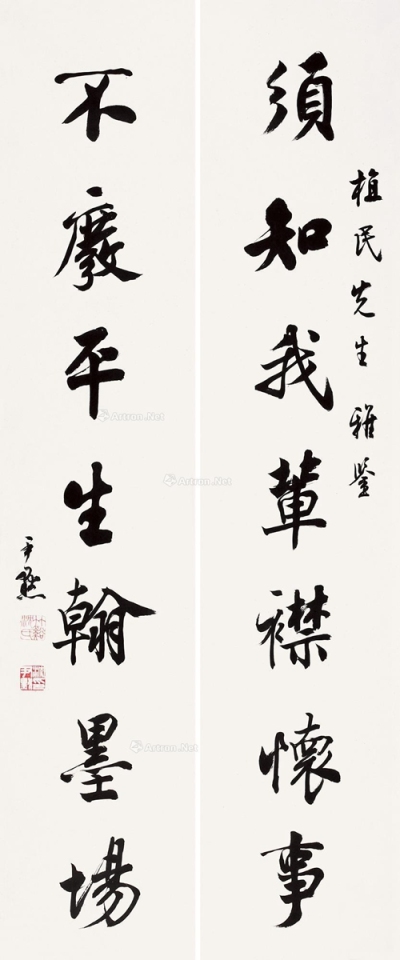 須知我輩襟懷事
植民先生雅鑒
不廢平生翰墨場
尹默
Artron.Net
Artron.Net
Artron.Net
Artron.Net